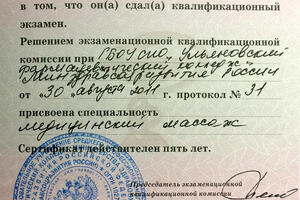 в том, что он(а) сдал(а) квалификационный
экзамен.
Решением экзаменационной квалификационной
комиссии при ГБОУ СПО "Ульяновский
фармацевтический колледж"
Минздравсоцразвития России
от "30" августа 2011 г. протокол № 31
присвоена специальность
медицинский массаж
Сертификат действителен пять лет.
Председатель экзаменационной
квалификационной комиссии